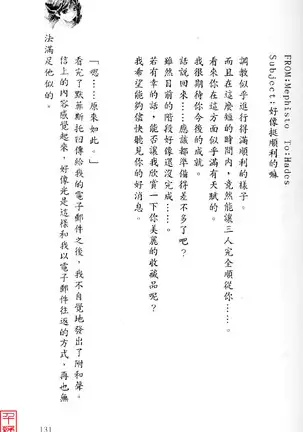 FROM:Mephisto To:Hades
Subject:好像挺順利的嘛
調教似乎進行得滿順利的樣子。
而且在這麼短的時間內，竟然能讓三人完全順從你……
看來你在這方面似乎滿有天賦的。
我很期待你今後的成就。
話說回來……應該都準備得差不多了吧？
雖然目前的階段好像還沒完成……
若有幸的話，能否讓我欣賞一下你美麗的收藏品呢？
我希望能夠儘快聽見你的好消息。
「嗯……原來如此。」
看完了默菲斯托回傳給我的電子郵件之後，我不自覺地發出了附和聲。
信上的內容感覺起來，好像光是這樣和我以電子郵件往返的方式，再也無
法滿足他似的。
131